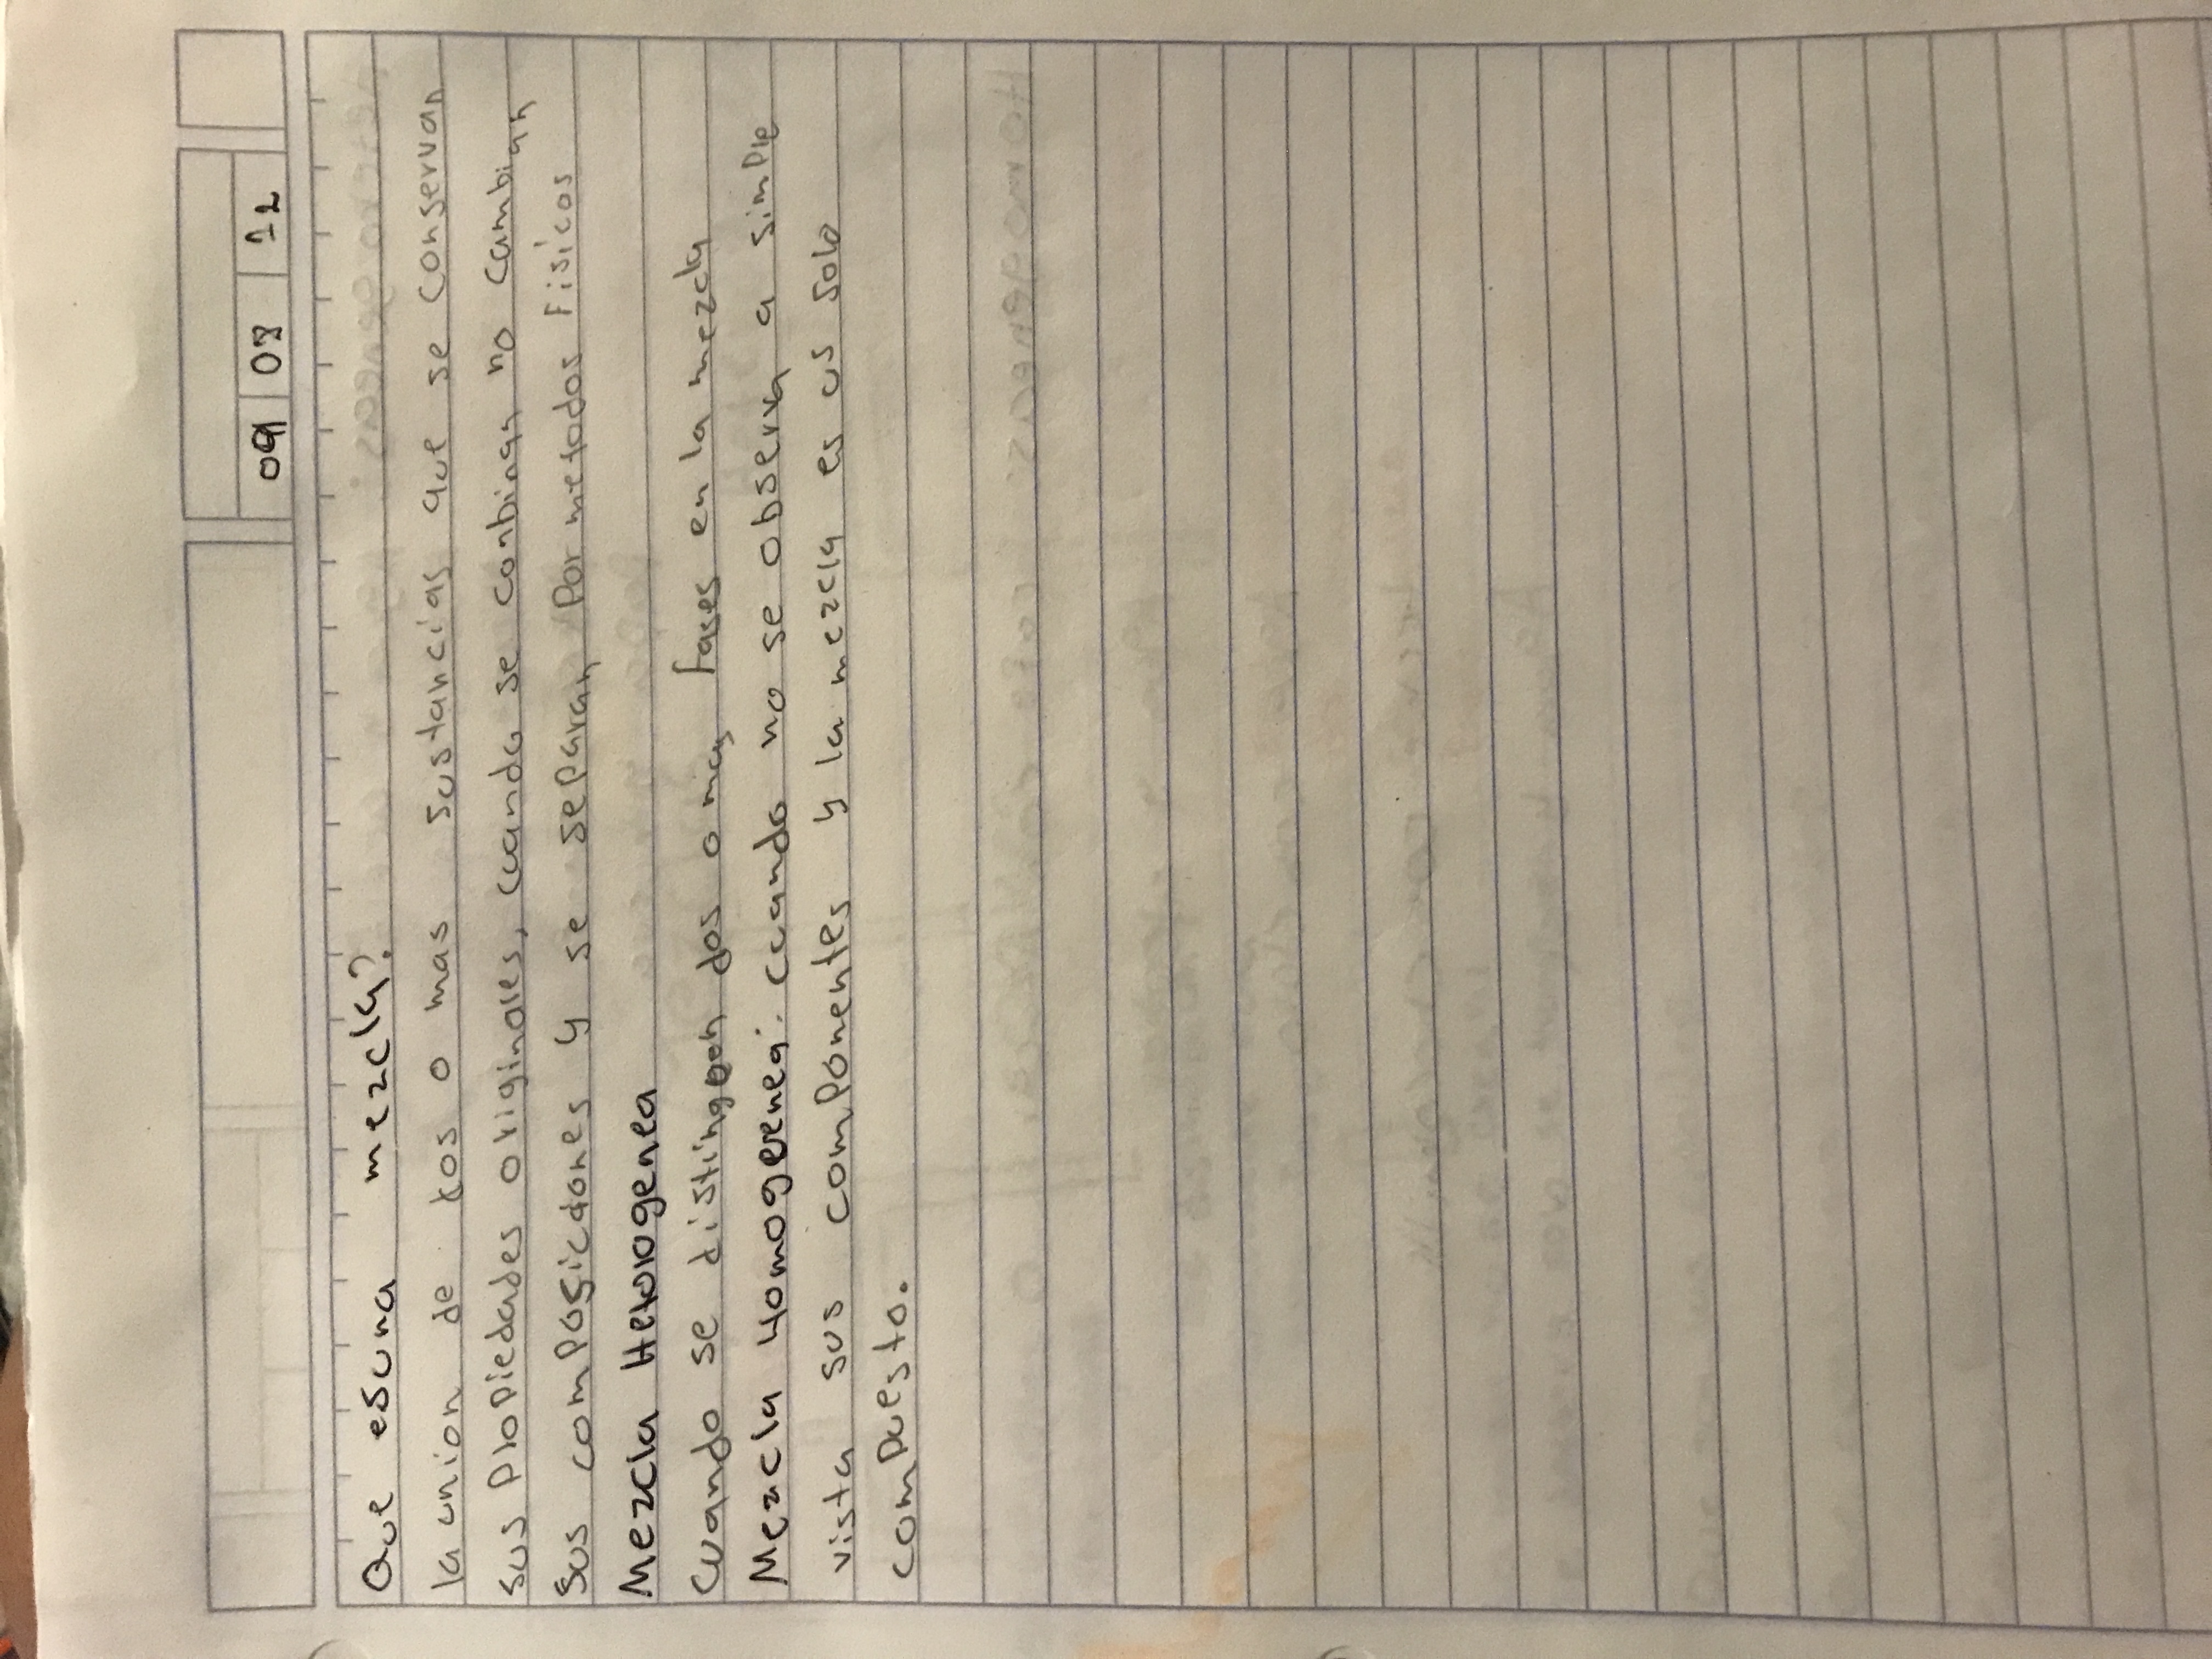 09 08 22
Que es una mezcla?
la union de dos o mas sustancias que se conservan
sus propiedades originales, cuando se conbinan no cambian
sus composiciones y se separan por metodos Fisicos
Mezcla Heterogenea
Cuando se distinguen dos o mas fases en la mezcla
Mezcla Homogenea: cuando no se observa a simple
vista sus componentes y la mezcla es us solo
compuesto.